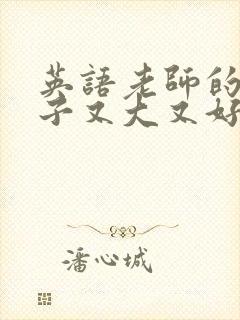 英語老師的
子又大又好
潘心城